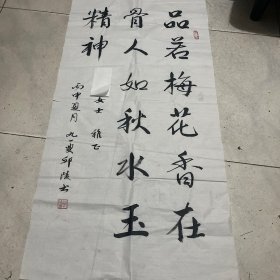 品若梅花香在
骨人如秋水玉
精神
女士雅正
丙申夏月九叟邱陵书